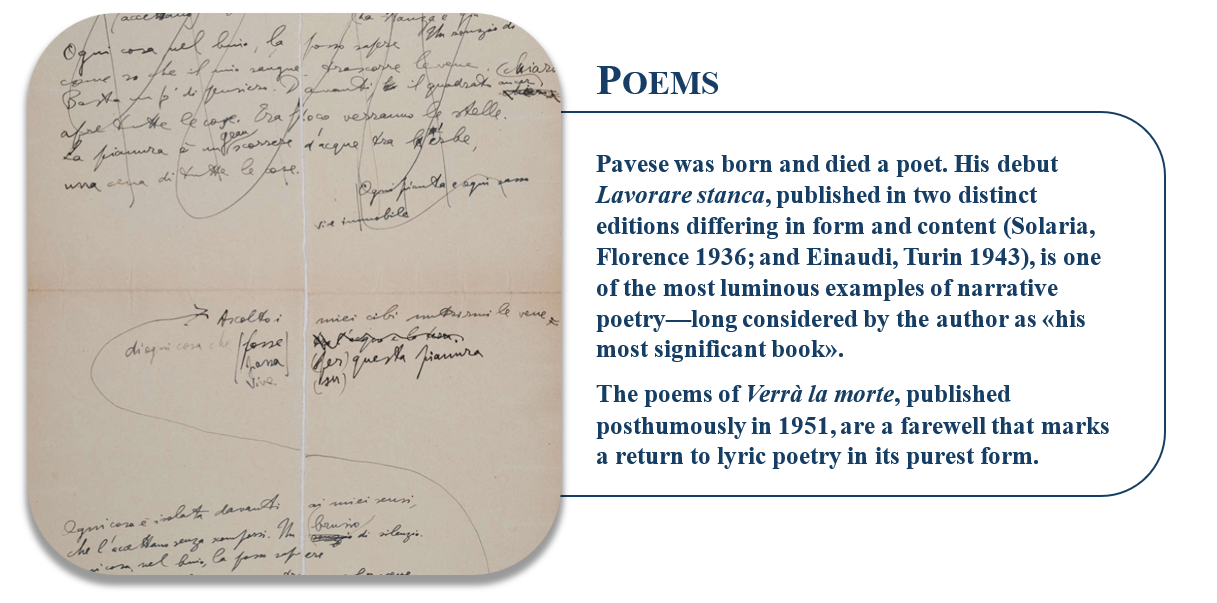 Ogni cosa nel buio, la posso sapere
come so che il mio sangue trascorre le vene.
Basta un po' di pensiero. Davanti è il quadrato
apre tutte le cose. Tra poco verranno le stelle.
gran
La pianura è un scorrere d'acque tra l'erbe,
una cena di tutte le cose.
Ogni pianta e ogni sasso
vive immobile
Ascolto i miei cibi nutrirmi le vene
di ogni cosa che
fosse
possa
vive
(per) questa pianura
(su)
Ogni cosa è isolata davanti ai miei sensi,
che l'accettano senza scomporsi. Un brusio di silenzio.
cosa nel buio, la posso sapere
POEMS
Pavese was born and died a poet. His debut
Lavorare stanca, published in two distinct
editions differing in form and content (Solaria,
Florence 1936; and Einaudi, Turin 1943), is one
of the most luminous examples of narrative
poetry—long considered by the author as «his
most significant book».
The poems of Verrà la morte, published
posthumously in 1951, are a farewell that marks
a return to lyric poetry in its purest form.